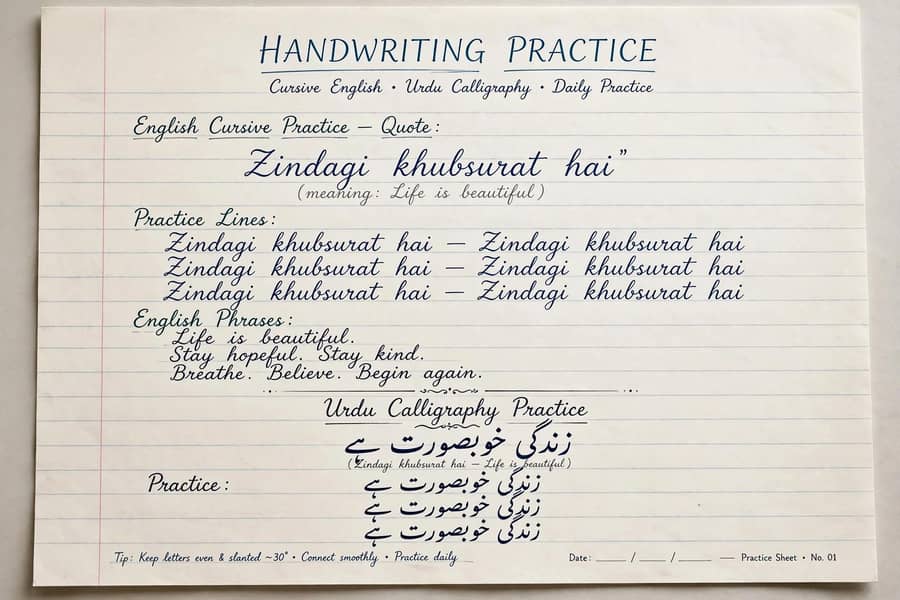 HANDWRITING PRACTICE
Cursive English • Urdu Calligraphy • Daily Practice
English Cursive Practice — Quote:
Zindagi khubsurat hai”
(meaning: Life is beautiful)
Practice Lines:
Zindagi khubsurat hai — Zindagi khubsurat hai
Zindagi khubsurat hai — Zindagi khubsurat hai
Zindagi khubsurat hai — Zindagi khubsurat hai
English Phrases:
Life is beautiful.
Stay hopeful. Stay kind.
Breathe. Believe. Begin again.
Urdu Calligraphy Practice
زندگی خوبصورت ہے
(Zindagi khubsurat hai — Life is beautiful)
Practice:
زندگی خوبصورت ہے
زندگی خوبصورت ہے
زندگی خوبصورت ہے
Tip: Keep letters even & slanted ~30° • Connect smoothly • Practice daily
Date: ____ / ____ / ____ — Practice Sheet • No. 01